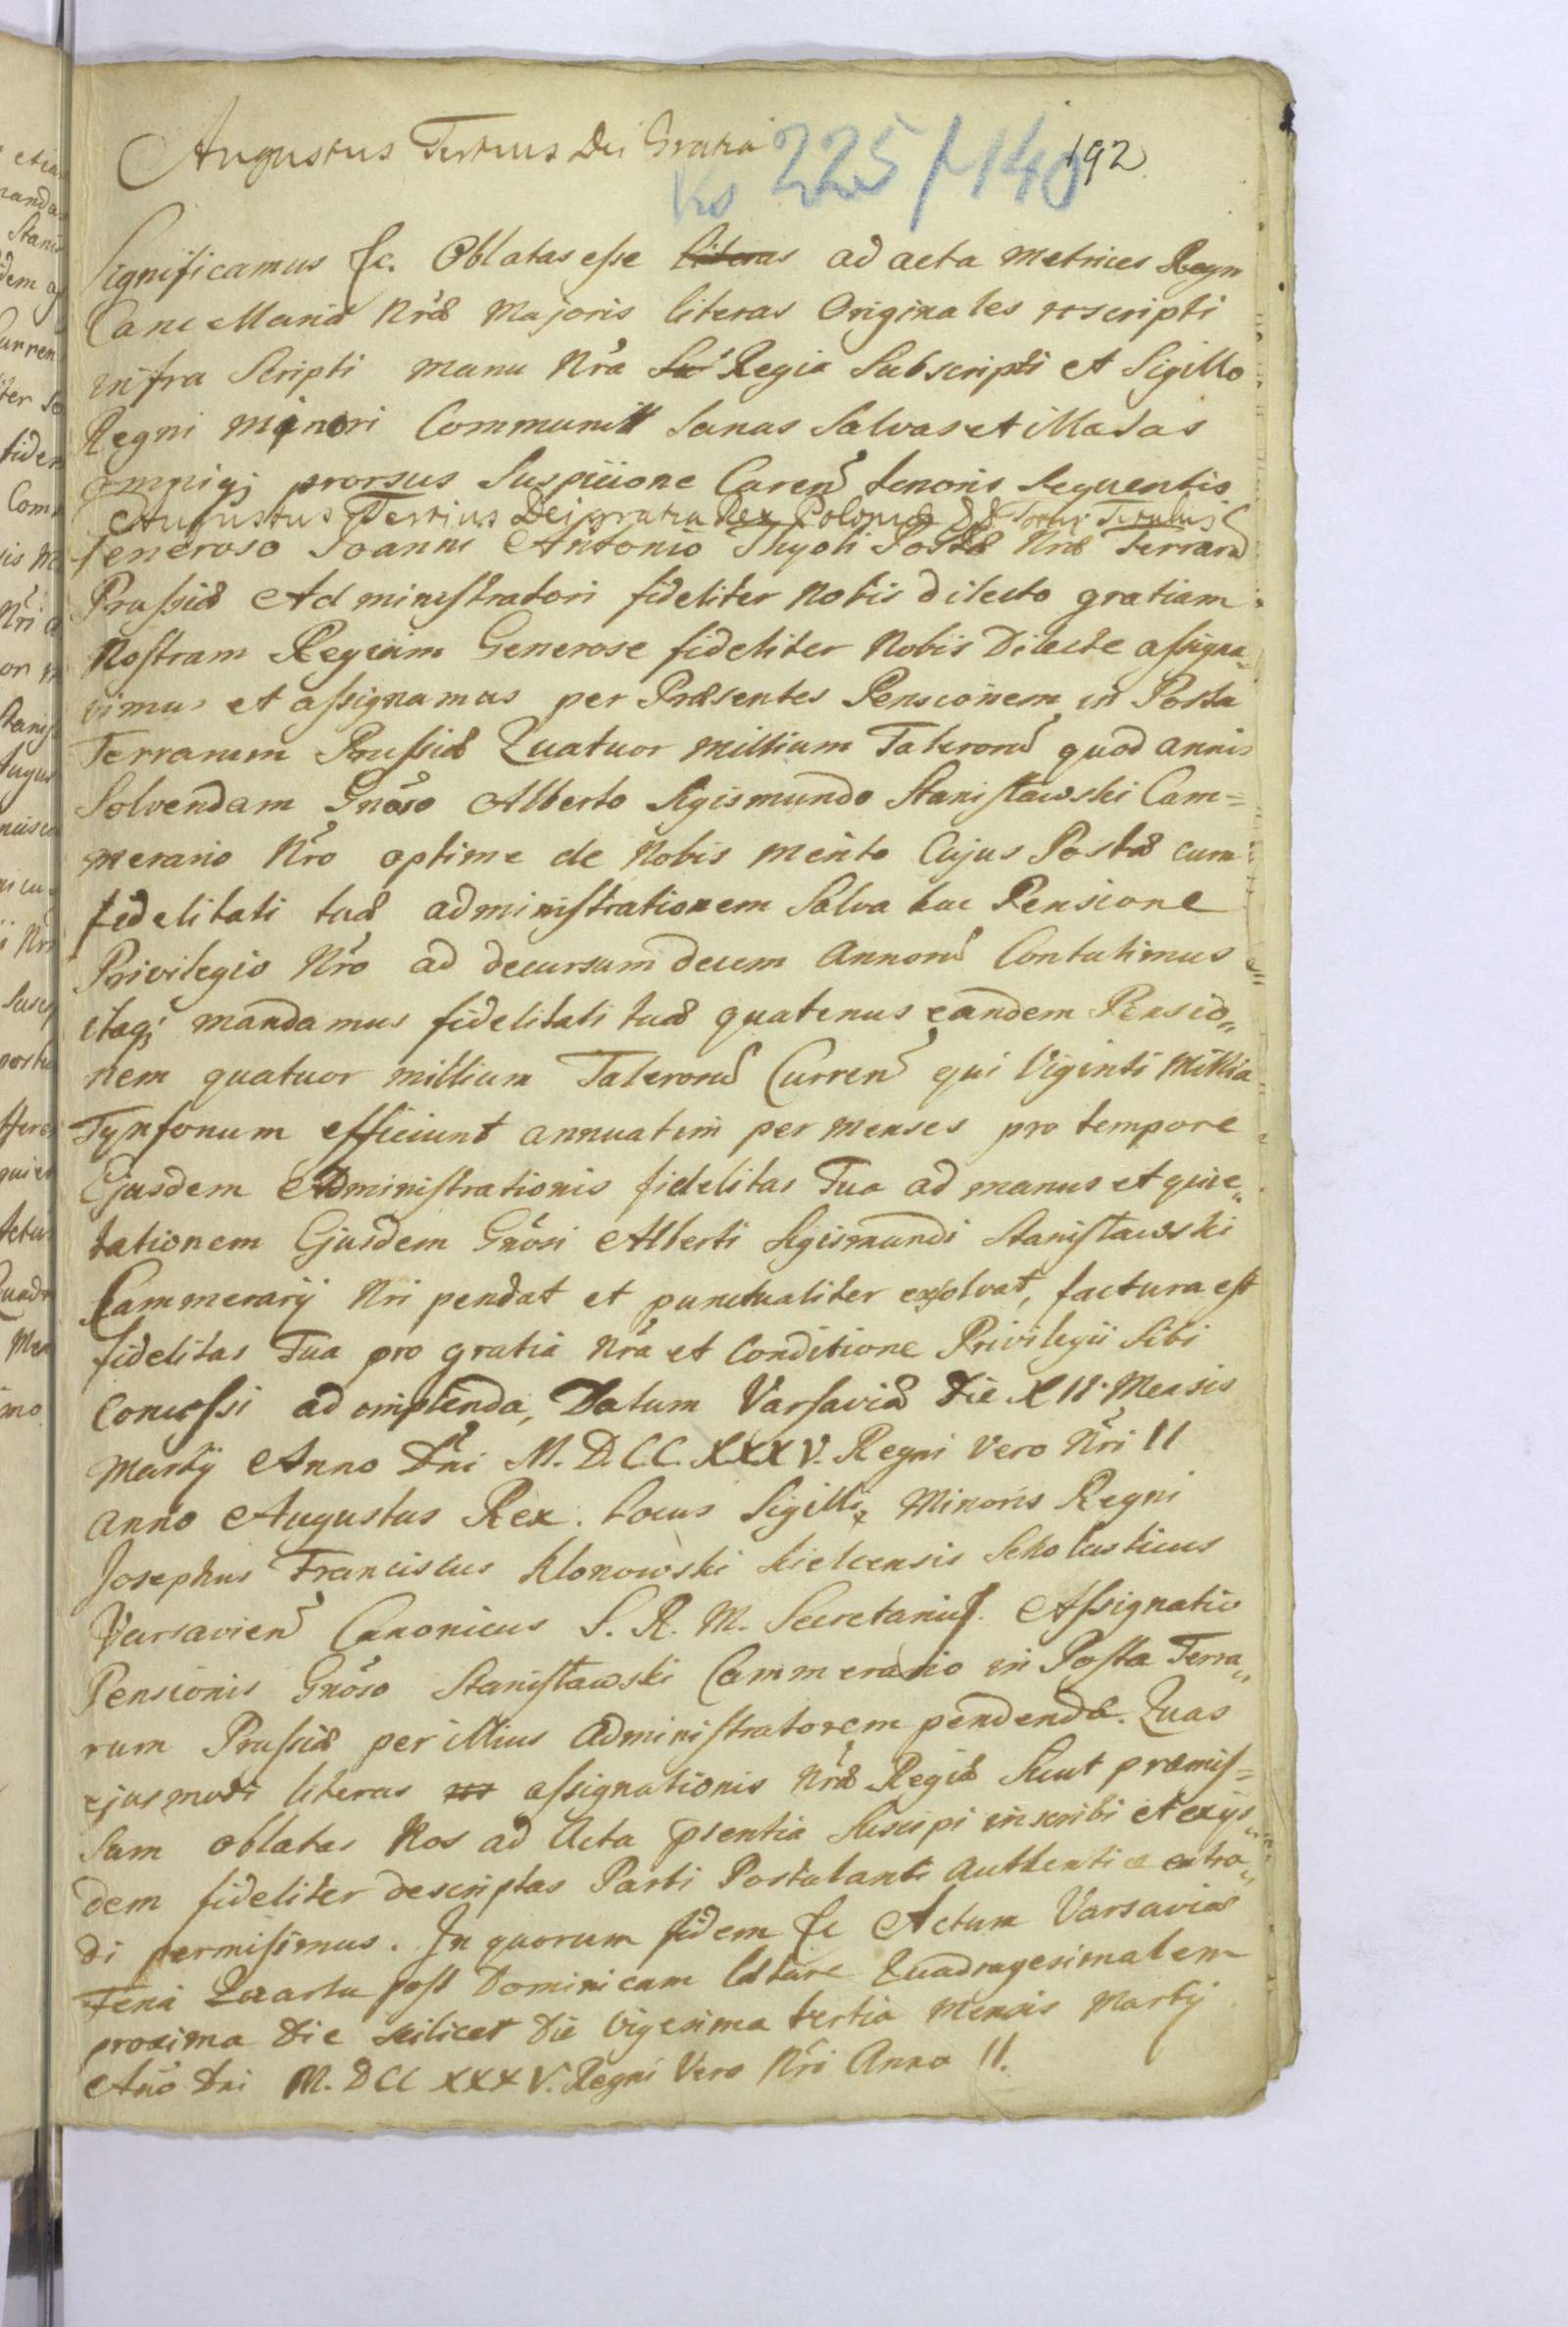 Augustus Tertius Dei Gratia
Ks 225/140
192
Significamus &c. Oblatas esse literas ad acta Metrices Regn
Cancellariæ Nræ Majoris literas Originales rescripti
infra Scripti manu Nra Regia Subscripti et Sigillo
Regni minori Communit Sanas Salvas et illæsas
omniq; prorsus Suspicione Caren tenoris Sequentis
Augustus Tertius Dei gratia Rex Poloniæ && Totus Titulus
Generoso Joanni Antonio Thyoli Postæ Nræ Terraru
Prussiæ Administratori fideliter Nobis dilecto gratiam
Nostram Regiam Generose fideliter Nobis Dilecte assigna„
vimus et assignamus per Præsentes Pensionem in Posta
Terrarum Prussiæ Quatuor millium Taleroru quod annis
Solvendam Gnoso Alberto Sigismundo Stanisławski Cam=
merario Nro optime de Nobis merito Cujus Postæ cum
fidelitati tuæ administrationem Salva hac Pensione
Privilegio Nro ad decursum decem Annoru Contulimus
itaq; mandamus fidelitati tuæ quatenus eandem Pensio„
nem quatuor millium Taleroru Curren qui Viginti Millia
Tynfonum efficiunt annuatim per menses pro tempore
Ejusdem Administrationis fidelitas Tua ad manus et quie„
tationem Ejusdem Gnosi Alberti Sigismundi Stanisławski
Cammerarij Nri pendat et punctualiter exsolvat, factura est
fidelitas Tua pro gratia Nra et Conditione Privilegii Sibi
Concessi ad omplenda, Datum Varsaviæ Die XII. Mensis
Martij Anno Dni M.D.CC.XXXV. Regni Vero Nri II
anno Augustus Rex. Locus Sigilli Minoris Regni
Josephus Franciscus Klonowski Kielcensis Scholasticus
Varsavien Canonicus S. R. M. Secretarius. Assignatio
Pensionis Gnoso Stanisławski Cammerario in Posta Terra„
rum Prussiæ per illius Administratorem pendenda. Quas
ejusmodi literas assignationis Nræ Regiæ Sicut præmis=
sum oblatas Nos ad Acta pæsentia Suscipi inscribi et exijs„
dem fideliter descriptas Parti Postulanti Authentice extra„
di permisimus. In quorum fidem &c Actum Varsaviæ
Feria Quarta post Dominicam Lætare Quadragesimalem
proxima Die scilicet Die Vigesima tertia Mensis Martij
Año Dni M.DCC XXXV. Regni Vero Nri Anno II.